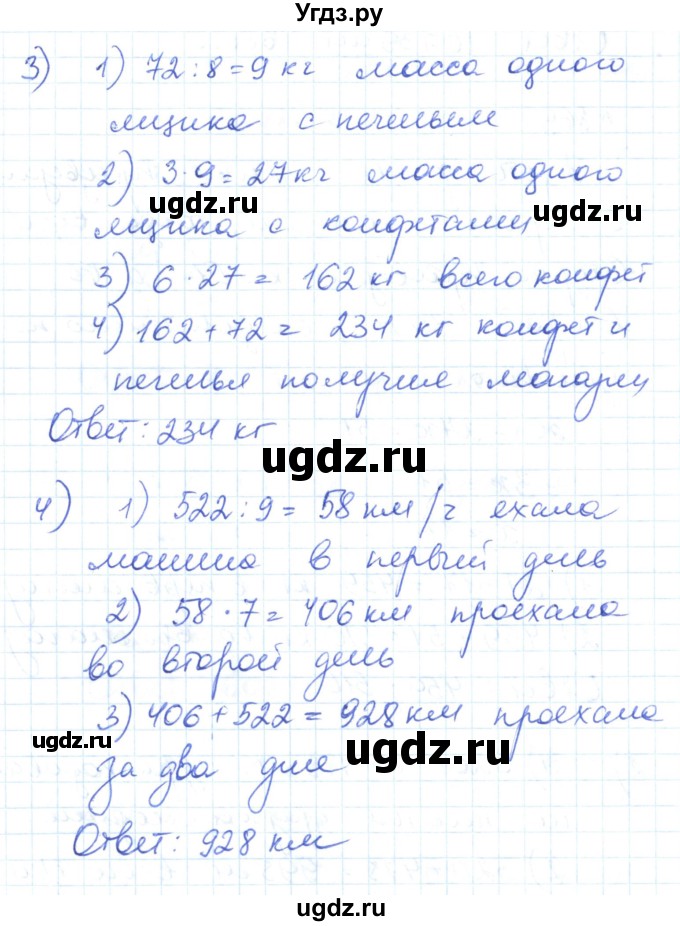 Угдз.ру
3) 1) 72 : 8 = 9 кг масса одного
ящика с печеньем
2) 3 · 9 = 27 кг масса одного
ugdz.ru
ugdz.ru
ящика с конфетами
3) 6 · 27 = 162 кг всего конфет
4) 162 + 72 = 234 кг конфет и
печенья получил магазин
Ответ: 234 кг
ugdz.ru
4) 1) 522 : 9 = 58 км/ч ехала
машина в первый день
2) 58 · 7 = 406 км проехала
во второй день
3) 406 + 522 = 928 км проехала
ugdz.ru
ugdz.ru
за два дня
Ответ: 928 км
ugdz.ru